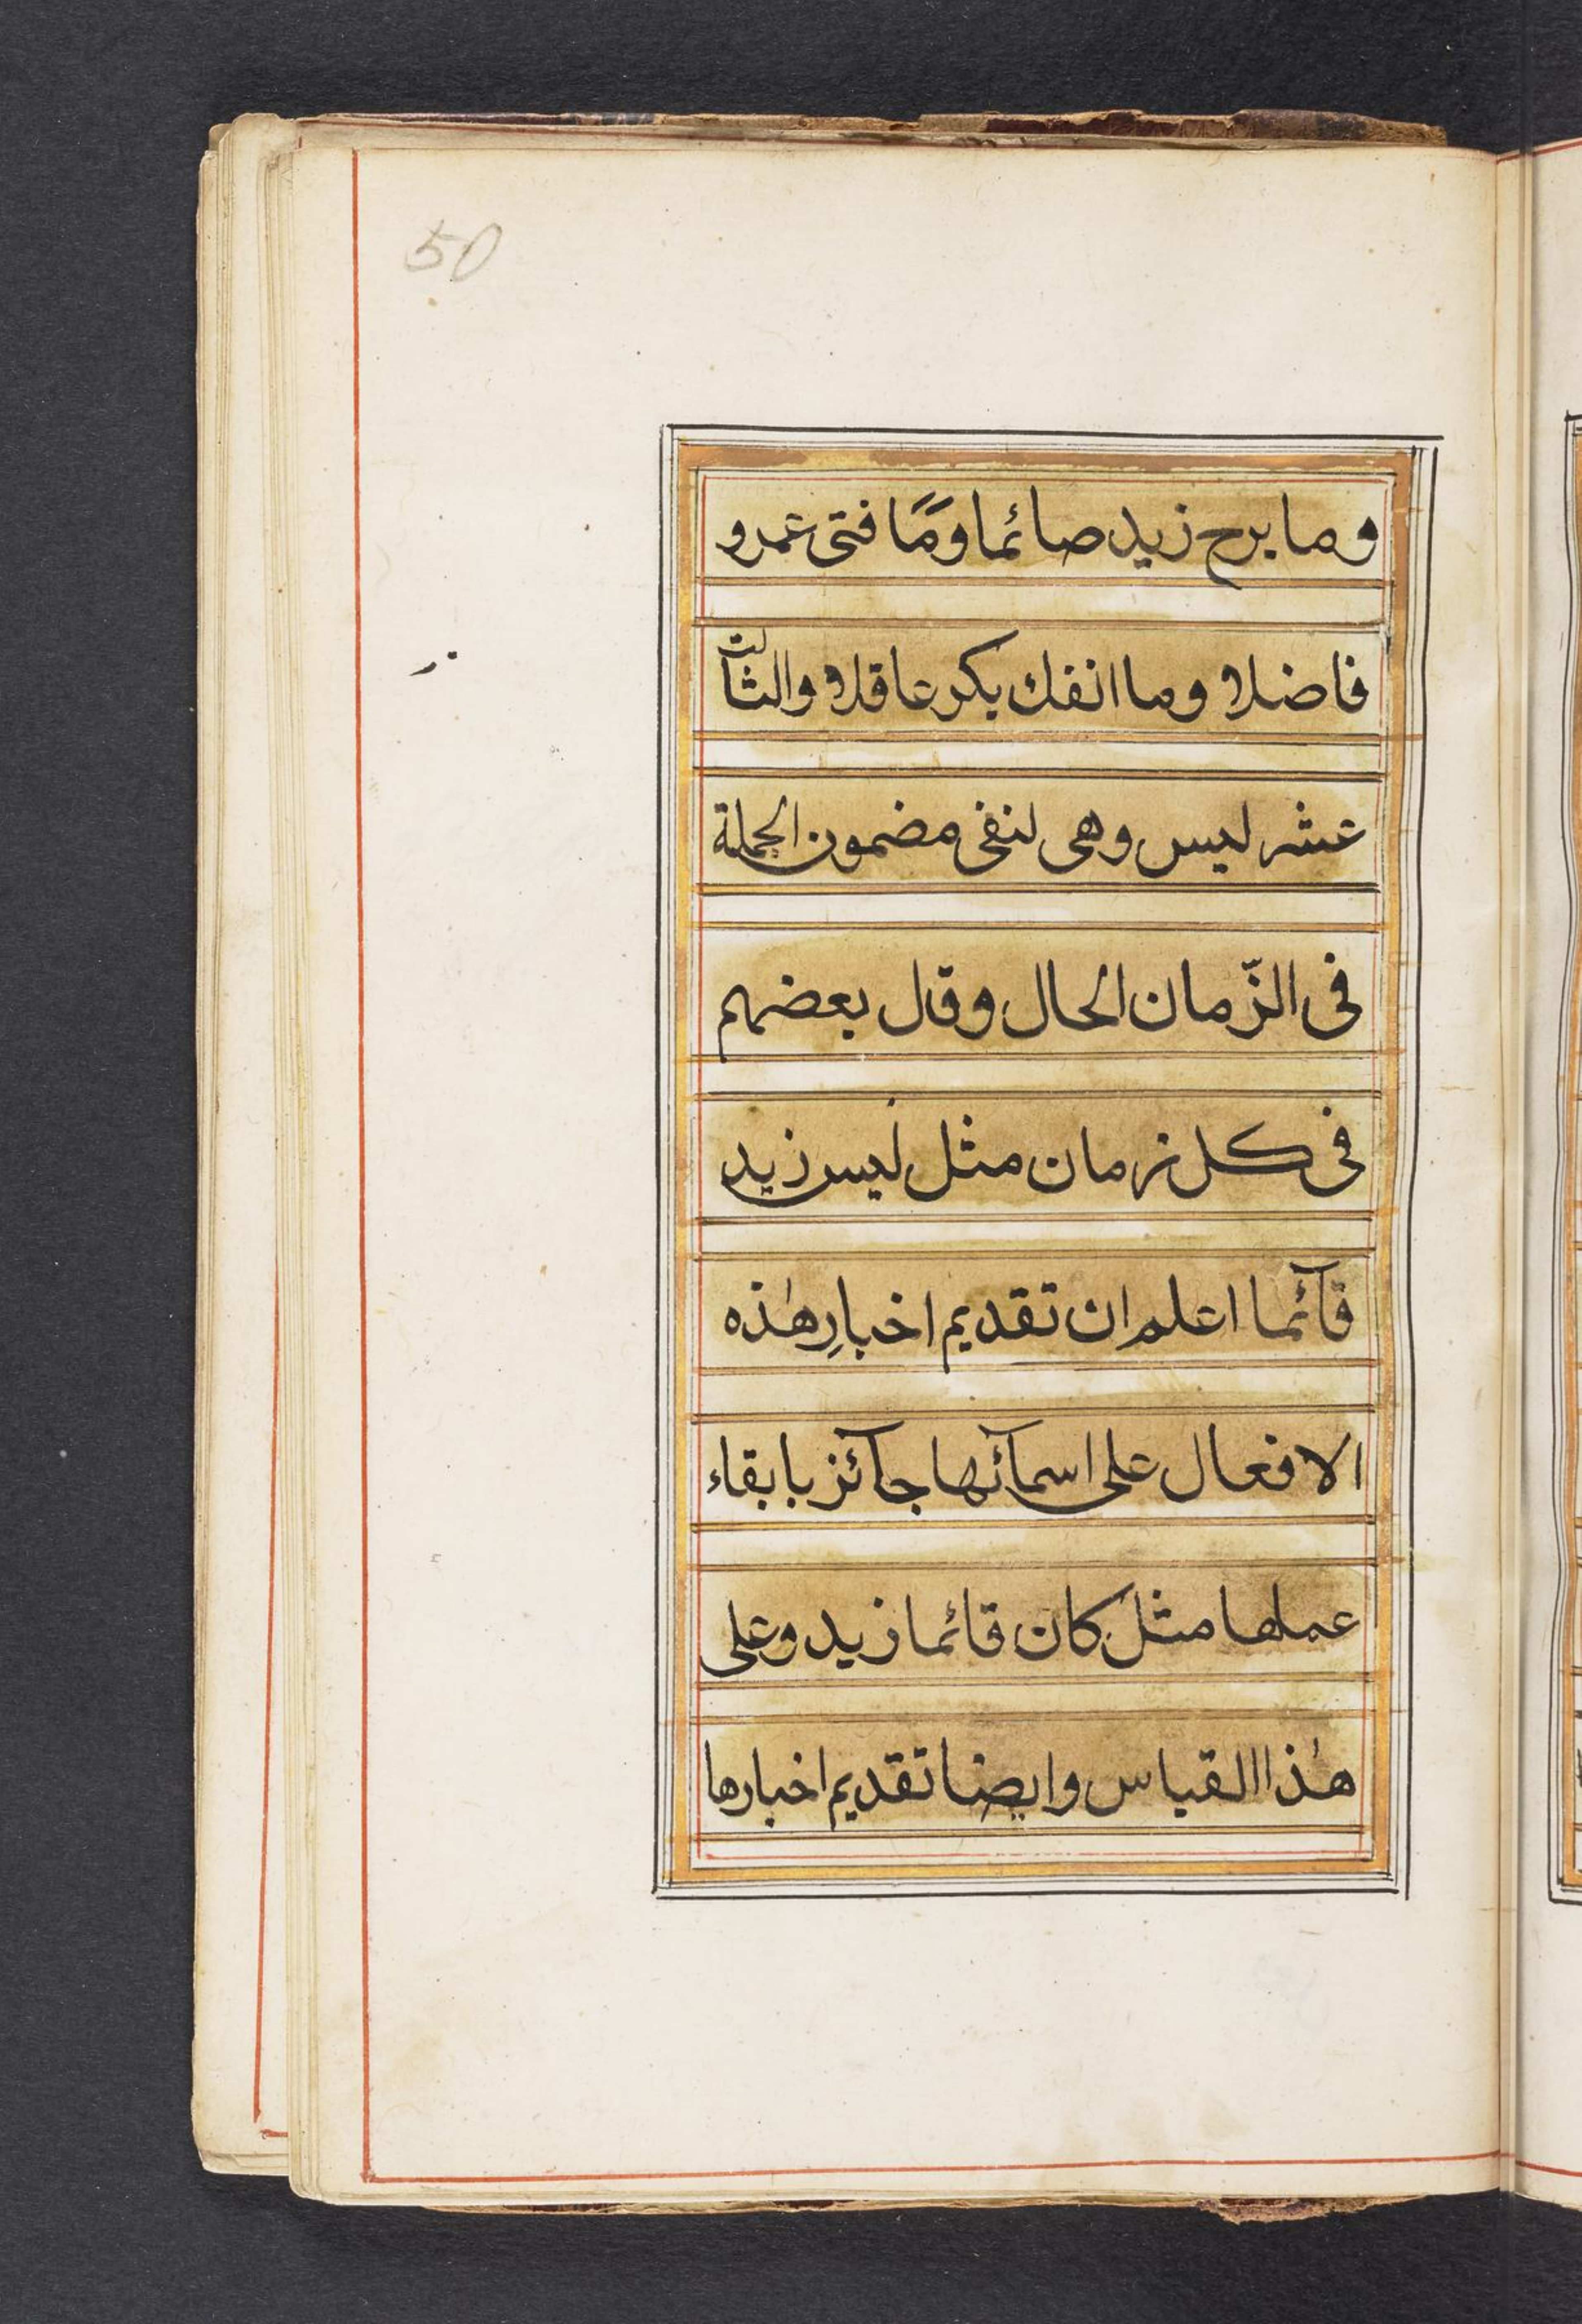 50
وما برح زيد صائما وَمَا فتى عمرو
فاضلا وما انفك بكر عاقلا والثالث
عشر ليس وهى لنفى مضمون الجملة
فى الزّمان الحال وقال بعضهم
فى كل زمان مثل ليس زيد
قآئما اعلم ان تقديم اخبارِ هٰذه
الافعال على اسمآئها جآئز بابقاء
عملها مثل كان قائما زيد وعلى
هٰذا القياس وايضا تقديم اخبارها